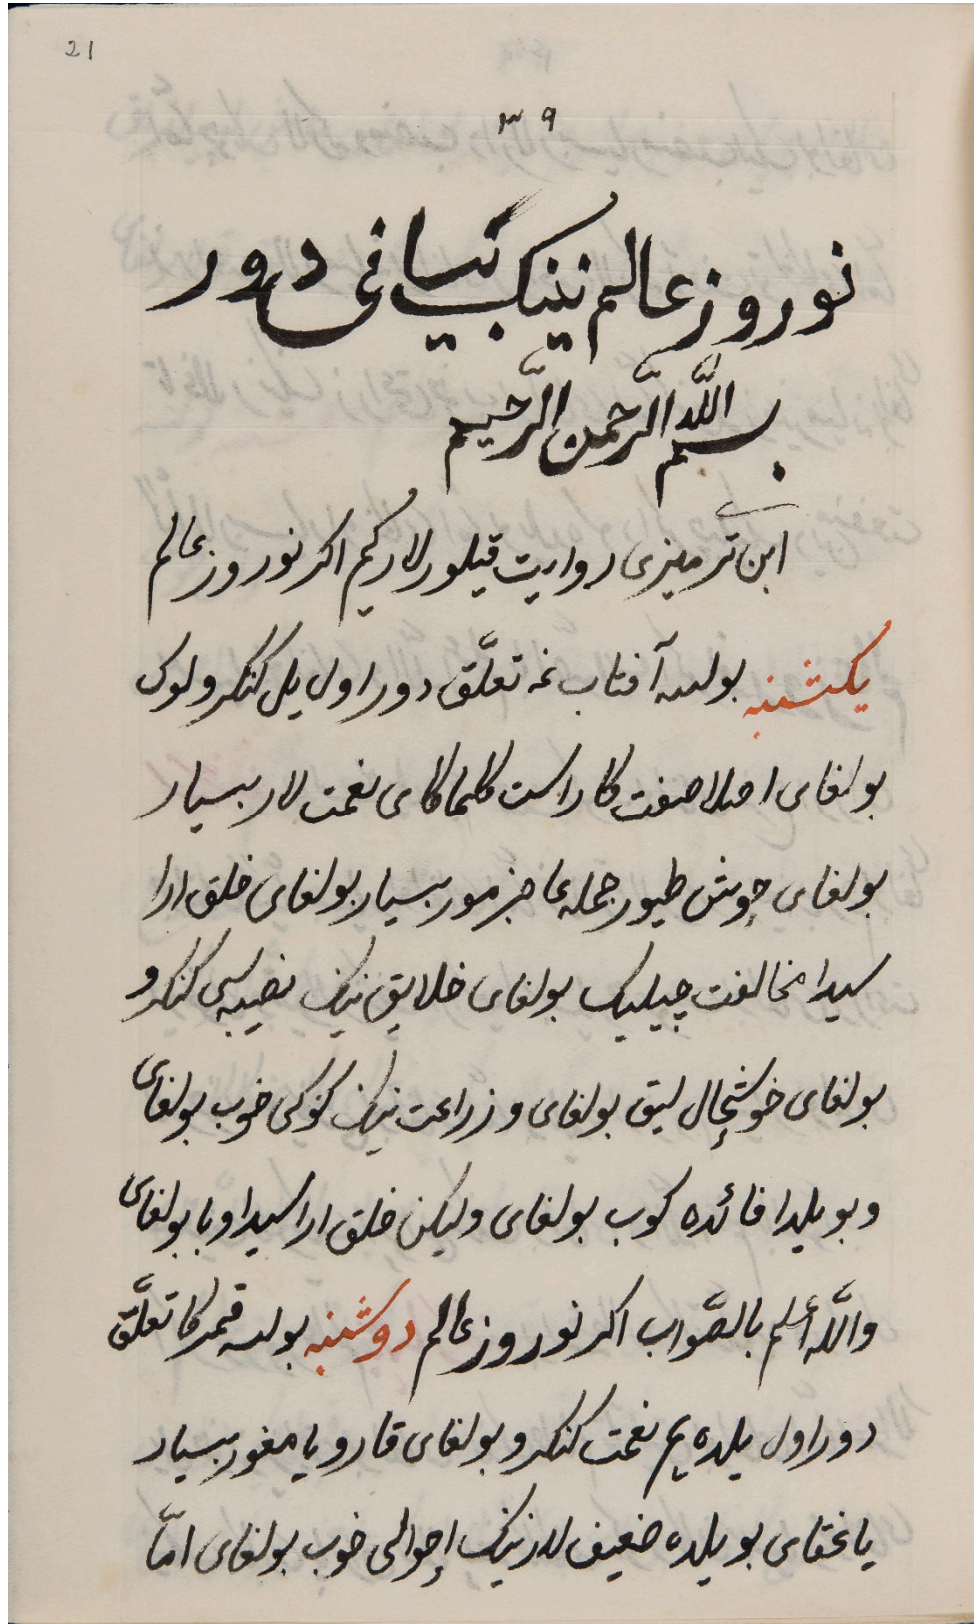 21
٣٩
نوروز عالم نینک بیانی دور
بسم الله الرّحمن الرّحیم
ابن ترمیزی روایت قیلورلار کیم اکر نوروز عالم
یکشنبه بولسه آفتاب غه تعلّق دور اول یل کنکرولوک
بولغای اصلا صفت کا راست کلماکای نعمت لار بسیار
بولغای چوش طیور جمله عاجز مور بسیار بولغای خلق ارا
سیدا مخالفت چیلیک بولغای خلایق نینک نصیبه سی کنکرو
بولغای خوشحال لیق بولغای و زراعت نینک کوکی خوب بولغای
و بو یلدا فائده کوب بولغای ولیکن خلق اراسیدا وبا بولغای
والله اعلم بالصّواب اکر نوروز عالم دوشنبه بولسه قمر کا تعلّق
دور اول یلده هم نعمت کنکرو بولغای قار و یامغور بسیار
یاغقای بو یلده ضعیف لار نینک احوالی خوب بولغای امّا